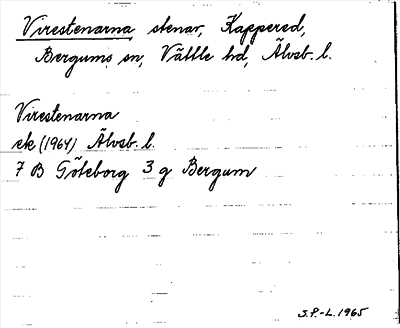 Virestenarna stenar, Kappered,
Bergums sn, Vättle hd, Älvsb. l.
Virestenarna
ek (1964) Älvsb. l.
7 B Göteborg 3 g Bergum
S.P.-L. 1965